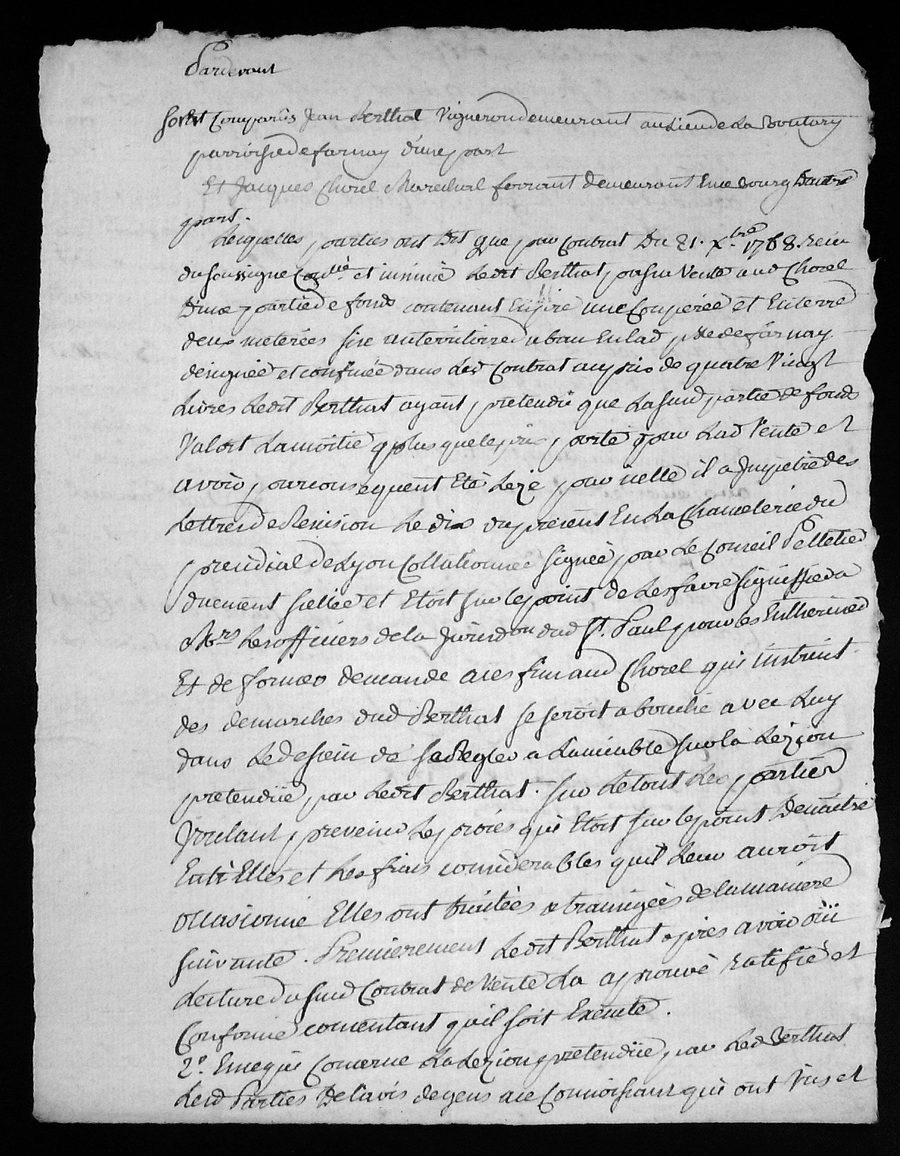 Pardevant
sont Comparus Jean Berthat Vigneron demeurant au lieu de La Boutary
parroisse de farnay d'une part
Et Jacques Chorel Marechal ferrant demeurant En ce bourg D'autre
part.
Lesquelles parties ont Dit que par Contrat Du 21. Xbre 1768. Receu
du soussigné et insinué Ledit Berthat passa Vente aud Chorel
D'une partie de fonds contenant une Couperée et En terre
deux meterées size au territoire du ban En lad psse de farnay
designée et confinée dans Led Contrat au prix de quatre Vingt
Livres Ledit Berthat ayant pretendu que La sud partie de fonds
Valoit La moitié plus que le prix porté par Lad Vente et
avoir par consequent Eté Lezé par icelle il a Impetré des
Lettres de Recision Le dix du present En La Chancelerie du
presidial de Lyon Collationnée signée par Le Conseil Pelletier
duement sellée et Etoit sur le point de Les faire signiffier a
Mrs Les officiers de la Jurisdon dud St. Paul pour les Entheriner
Et de former demande a ces fins aud Chorel qui instruit
des demarches dud Berthat se seroit abouché avec Luy
dans Le dessein de se Regler a L'amiable sur la Lezion
pretendüe par Ledit Berthat. sur Le tout Les parties
Voulant prevenir Le procés qui Etoit sur le point De naitre
Entr'Elles et Les frais considerables qu'il Leur auroit
occasionné Elles ont traitées et transigées de la maniere
suivante. Premierement Ledit Berthat apres avoir oüi
Lecture du sud Contrat de Vente L'a aprouvé Ratifié et
Confirmé consentant qu'il soit Executé.
2°. En ce qui Concerne La Lezion pretendüe par Led Berthat
Lesd Parties De L'avis de gens a ce Connoissant qui ont Vus et